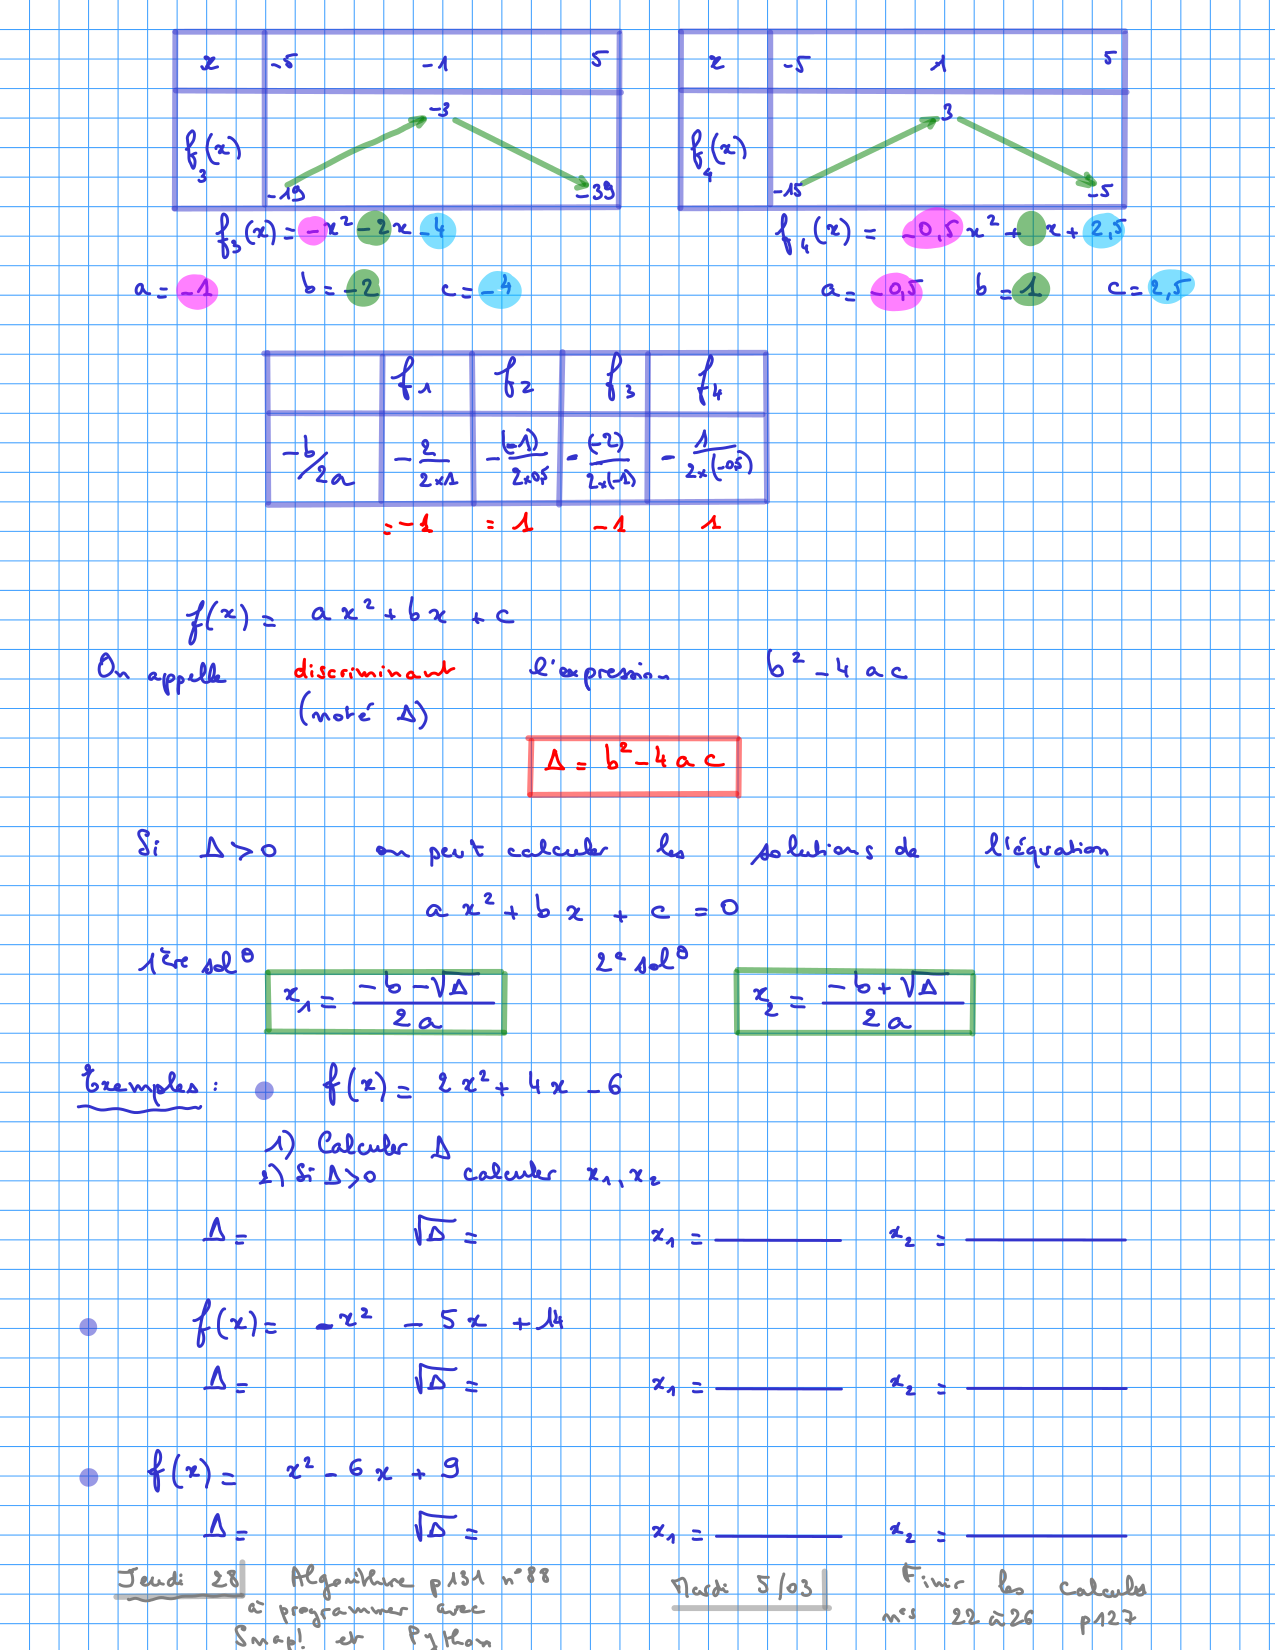 x -5 -1 5
-3
f₃(x)
-19 -39
f₃(x) = -x² -2x -4
a = -1 b = -2 c = -4
x -5 1 5
3
f₄(x)
-15 -5
f₄(x) = -0,5x² + x + 2,5
a = -0,5 b = 1 c = 2,5
f₁ f₂ f₃ f₄
-b/2a -2/(2×1) -(-1)/(2×0,5) -(-2)/(2×(-1)) -1/(2×(-0,5))
= -1 = 1 -1 1
f(x) = ax² + bx + c
On appelle discriminant l'expression b² - 4ac
(noté Δ)
Δ = b² - 4ac
Si Δ > 0 on peut calculer les solutions de l'équation
ax² + bx + c = 0
1ère solº 2e solº
x₁ = (-b - √Δ)/2a x₂ = (-b + √Δ)/2a
Exemples : f(x) = 2x² + 4x - 6
1) Calculer Δ
2) Si Δ > 0 calculer x₁, x₂
Δ = √Δ = x₁ = x₂ =
f(x) = -x² - 5x + 14
Δ = √Δ = x₁ = x₂ =
f(x) = x² - 6x + 9
Δ = √Δ = x₁ = x₂ =
Jeudi 28 Algorithme p131 n°88
à programmer avec
Snap! et Python
Mardi 5/03 Finir les calculs
nos 22 à 26 p127